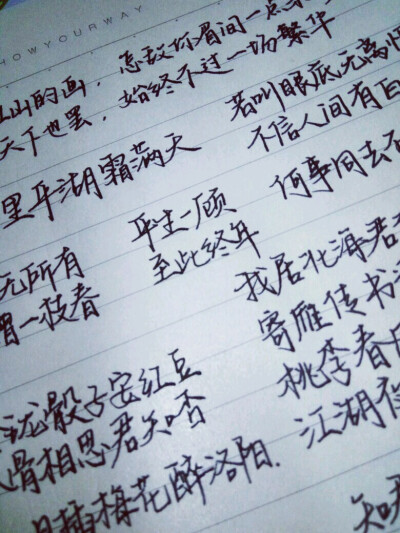 HOWYOURWAY
山的画，怎敌你眉间一点
天下也罢，始终不过一场繁华
里平湖霜满天
若叫眼底无离
不信人间有白
无所有
一枝春
平生一顾
至此终年
何事同去
我居北海君
寄雁传书
珑骰子安红豆
骨相思君知否
桃李春
江湖夜
插梅花醉洛阳.
知